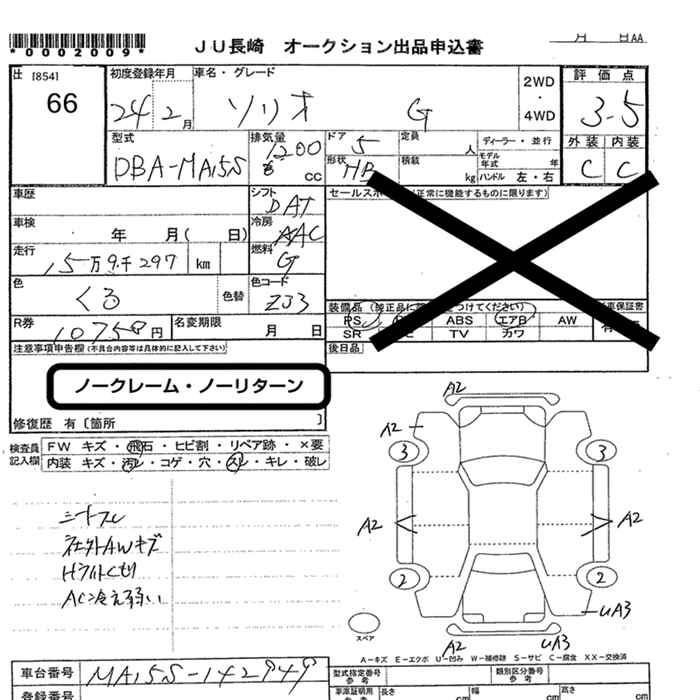 月　日AA
*0002009*
JU長崎　オークション出品申込書
出 [854]
66
初度登録年月
24 2月
車名・グレード
ソリオ G
2WD
・
4WD
評価点
3.5
外装 内装
C C
型式
DBA-MA15S
排気量
1200
cc
ドア
5
定員
人
ディーラー・並行
形状
HB
積載
kg
モデル年式　年
ハンドル 左・右
車歴
シフト
DAT
車検
年　月（　日）
冷房
AAC
走行
15万9千297 km
燃料
G
色
くろ
色替
色コード
ZJ3
R券
10750円
名変期限
月　日
装備品
PS
ABS エアB AW
SR TV カワ
後日品
注意事項申告欄(不具合内容等は具体的に記入して下さい)
ノークレーム・ノーリターン
修復歴 有〔箇所　〕
検査員
記入欄
FW キズ・飛石・ヒビ割・リペア跡・×要
内装 キズ・汚レ・コゲ・穴・スレ・キレ・破レ
シートスレ
社外AWキズ
AC冷え弱い
A2
A2
3 3
A2 A2
2 2
UA3
A2 UA3
スペア
A－キズ E－エクボ U－凹み W－補修跡 S－サビ C－腐食 XX－交換済
車台番号
MA15S-142949
登録番号
型式指定番号
参考
類別区分番号
参考
車庫証明用
参考
長さ
cm
幅
cm
高さ
cm